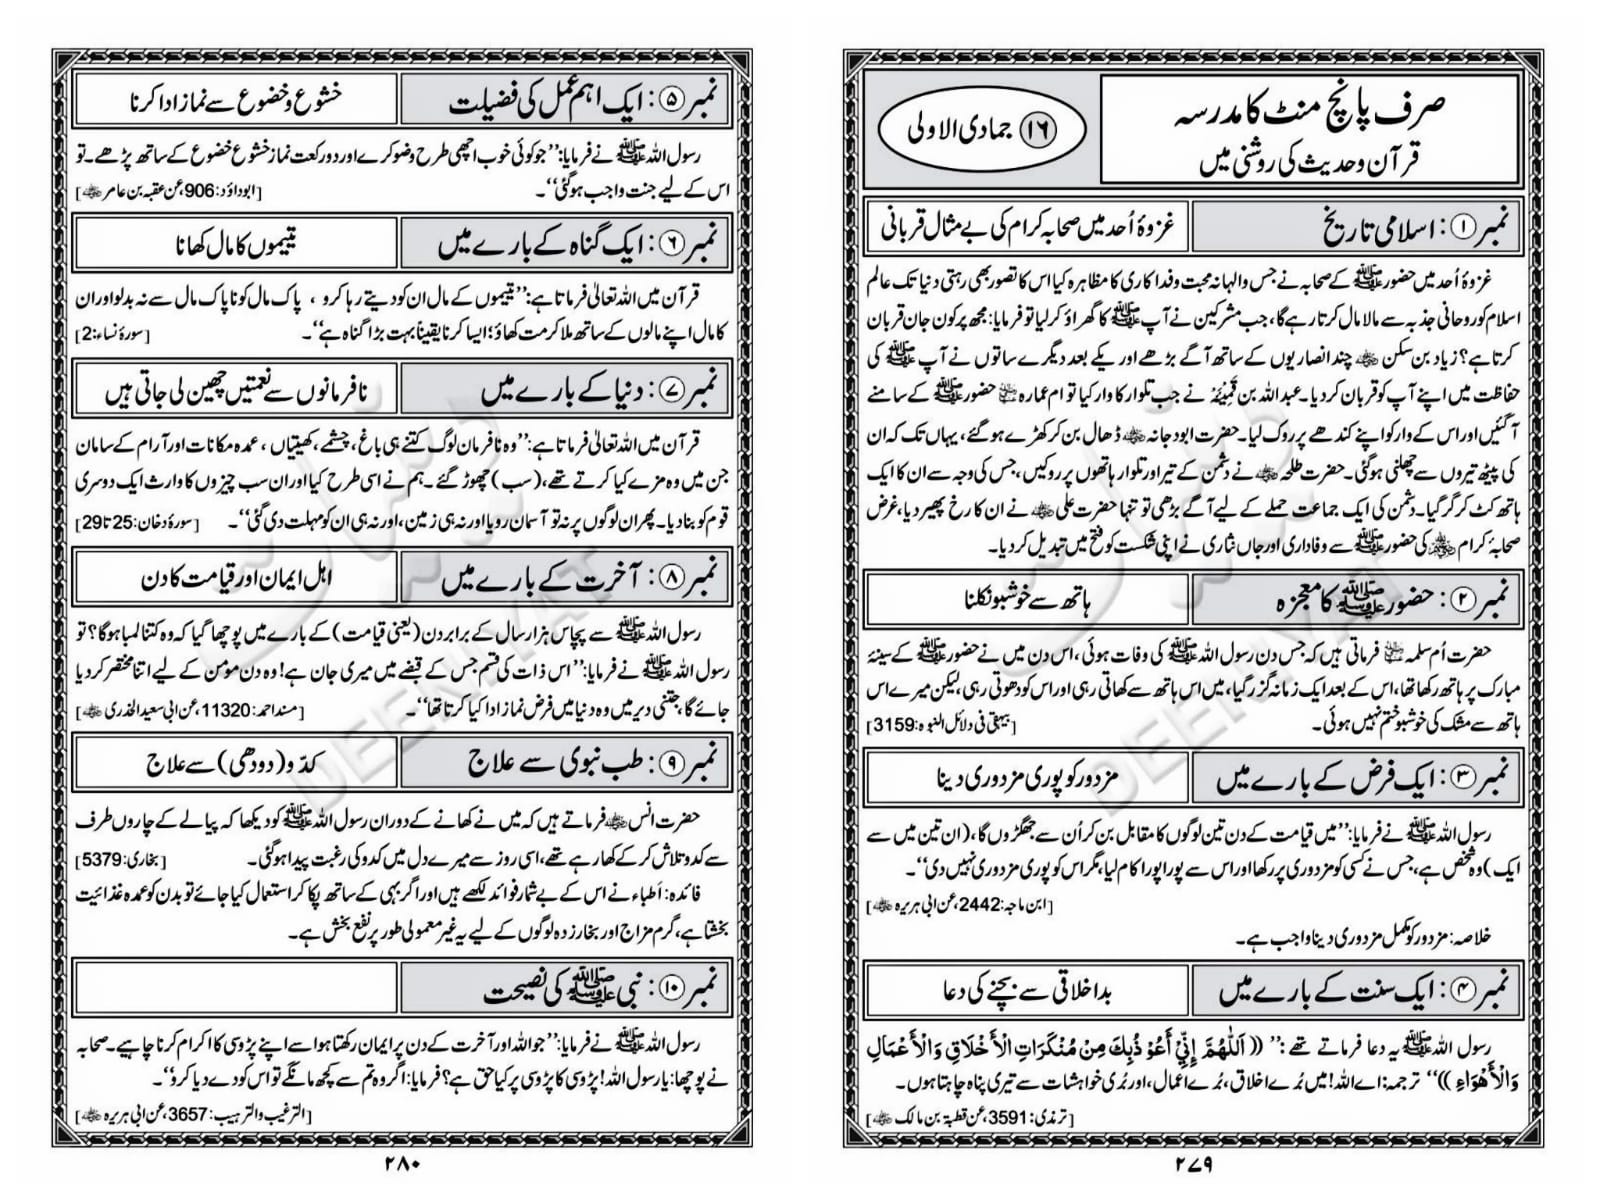 صرف پانچ منٹ کا مدرسہ
قرآن و حدیث کی روشنی میں
۱۶ جمادی الاولی
نمبر ۱: اسلامی تاریخ
غزوۂ اُحد میں صحابہ کرام کی بے مثال قربانی
غزوۂ اُحد میں حضور ﷺ کے صحابہ نے جس والہانہ محبت وفداکاری کا مظاہرہ کیا اس کا تصور بھی رہتی دنیا تک عالم
اسلام کو روحانی جذبہ سے مالا مال کرتا رہے گا، جب مشرکین نے آپ ﷺ کا گھراؤ کرلیا تو فرمایا: مجھ پر کون جان قربان
کرتا ہے؟ زیاد بن سکن ؓ چند انصاریوں کے ساتھ آگے بڑھے اور یکے بعد دیگرے ساتوں نے آپ ﷺ کی
حفاظت میں اپنے آپ کو قربان کردیا۔ عبداللہ بن قمیئہ نے جب تلوار کا وار کیا تو ام عمارہ ؓ حضور ﷺ کے سامنے
آگئیں اور اس کے وار کو اپنے کندھے پر روک لیا۔ حضرت ابو دجانہ ؓ ڈھال بن کر کھڑے ہوگئے، یہاں تک کہ ان
کی پیٹھ تیروں سے چھلنی ہوگئی۔ حضرت طلحہ ؓ نے دشمن کے تیر اور تلوار ہاتھوں پر روکیں، جس کی وجہ سے ان کا ایک
ہاتھ کٹ کر گرگیا۔ دشمن کی ایک جماعت حملے کے لیے آگے بڑھی تو تنہا حضرت علی ؓ نے ان کا رخ پھیر دیا، غرض
صحابۂ کرام ؓ کی حضور ﷺ سے وفاداری اور جاں نثاری نے اپنی شکست کو فتح میں تبدیل کردیا۔
نمبر ۲: حضور ﷺ کا معجزہ
ہاتھ سے خوشبو نکلنا
حضرت اُم سلمہ ؓ فرماتی ہیں کہ جس دن رسول اللہ ﷺ کی وفات ہوئی، اس دن میں نے حضور ﷺ کے سینۂ
مبارک پر ہاتھ رکھا تھا، اس کے بعد ایک زمانہ گزر گیا، میں اس ہاتھ سے کھاتی رہی اور اس کو دھوتی رہی، لیکن میرے اس
ہاتھ سے مشک کی خوشبو ختم نہیں ہوئی۔ [بیہقی فی دلائل النبوہ: 3159]
نمبر ۳: ایک فرض کے بارے میں
مزدور کو پوری مزدوری دینا
رسول اللہ ﷺ نے فرمایا: ’’میں قیامت کے دن تین لوگوں کا مقابل بن کر اُن سے جھگڑوں گا، (ان تین میں سے
ایک) وہ شخص ہے، جس نے کسی کو مزدوری پر رکھا اور اس سے پورا پورا کام لیا، مگر اس کو پوری مزدوری نہیں دی‘‘۔
[ابن ماجہ: 2442، عن ابی ہریرہ ؓ]
خلاصہ: مزدور کو مکمل مزدوری دینا واجب ہے۔
نمبر ۴: ایک سنت کے بارے میں
بداخلاقی سے بچنے کی دعا
رسول اللہ ﷺ یہ دعا فرماتے تھے: ’’(( اَللّٰهُمَّ إِنِّيْ أَعُوْذُبِكَ مِنْ مُنْكَرَاتِ الْأَخْلَاقِ وَالْأَعْمَالِ
وَالْأَهْوَاءِ ))‘‘ ترجمہ: اے اللہ! میں بُرے اخلاق، بُرے اعمال، اور بُری خواہشات سے تیری پناہ چاہتا ہوں۔
[ترمذی: 3591، عن قطبۃ بن مالک ؓ]
۲۷۹
نمبر ۵: ایک اہم عمل کی فضیلت
خشوع و خضوع سے نماز ادا کرنا
رسول اللہ ﷺ نے فرمایا: ’’جو کوئی خوب اچھی طرح وضو کرے اور دو رکعت نماز خشوع خضوع کے ساتھ پڑھے۔ تو
اس کے لیے جنت واجب ہوگئی‘‘۔ [ابوداؤد: 906، عن عقبہ بن عامر ؓ]
نمبر ۶: ایک گناہ کے بارے میں
یتیموں کا مال کھانا
قرآن میں اللہ تعالیٰ فرماتا ہے: ’’یتیموں کے مال ان کو دیتے رہا کرو ، پاک مال کو ناپاک مال سے نہ بدلو اور ان
کا مال اپنے مالوں کے ساتھ ملا کر مت کھاؤ؛ ایسا کرنا یقیناً بہت بڑا گناہ ہے‘‘۔ [سورۂ نساء: 2]
نمبر ۷: دنیا کے بارے میں
نافرمانوں سے نعمتیں چھین لی جاتی ہیں
قرآن میں اللہ تعالیٰ فرماتا ہے: ’’وہ نافرمان لوگ کتنے ہی باغ، چشمے، کھیتیاں ، عمدہ مکانات اور آرام کے سامان
جن میں وہ مزے کیا کرتے تھے، (سب) چھوڑ گئے۔ ہم نے اسی طرح کیا اور ان سب چیزوں کا وارث ایک دوسری
قوم کو بنا دیا۔ پھر ان لوگوں پر نہ تو آسمان رویا اور نہ ہی زمین، اور نہ ہی ان کو مہلت دی گئی‘‘۔ [سورۂ دخان: 25 تا 29]
نمبر ۸: آخرت کے بارے میں
اہل ایمان اور قیامت کا دن
رسول اللہ ﷺ سے پچاس ہزار سال کے برابر دن (یعنی قیامت) کے بارے میں پوچھا گیا کہ وہ کتنا لمبا ہوگا؟ تو
رسول اللہ ﷺ نے فرمایا: ’’اس ذات کی قسم جس کے قبضے میں میری جان ہے! وہ دن مومن کے لیے اتنا مختصر کردیا
جائے گا، جتنی دیر میں وہ دنیا میں فرض نماز ادا کیا کرتا تھا‘‘۔ [مسند احمد: 11320، عن ابی سعید الخدری ؓ]
نمبر ۹: طب نبوی سے علاج
کدّو (دودھی) سے علاج
حضرت انس ؓ فرماتے ہیں کہ میں نے کھانے کے دوران رسول اللہ ﷺ کو دیکھا کہ پیالے کے چاروں طرف
سے کدو تلاش کرکے کھا رہے تھے، اسی روز سے میرے دل میں کدو کی رغبت پیدا ہوگئی۔ [بخاری: 5379]
فائدہ: اَطباء نے اس کے بے شمار فوائد لکھے ہیں اور اگر بہی کے ساتھ پکا کر استعمال کیا جائے تو بدن کو عمدہ غذائیت
بخشتا ہے، گرم مزاج اور بخار زدہ لوگوں کے لیے یہ غیر معمولی طور پر نفع بخش ہے۔
نمبر ۱۰: نبی ﷺ کی نصیحت
رسول اللہ ﷺ نے فرمایا: ’’جو اللہ اور آخرت کے دن پر ایمان رکھتا ہو اسے اپنے پڑوسی کا اکرام کرنا چاہیے۔ صحابہ
نے پوچھا: یا رسول اللہ! پڑوسی کا پڑوسی پر کیا حق ہے؟ فرمایا: اگر وہ تم سے کچھ مانگے تو اس کو دے دیا کرو‘‘۔
[الترغیب والترہیب: 3657، عن ابی ہریرہ ؓ]
۲۸۰
دینیات
DEENIYAT
دینیات
DEENIYAT